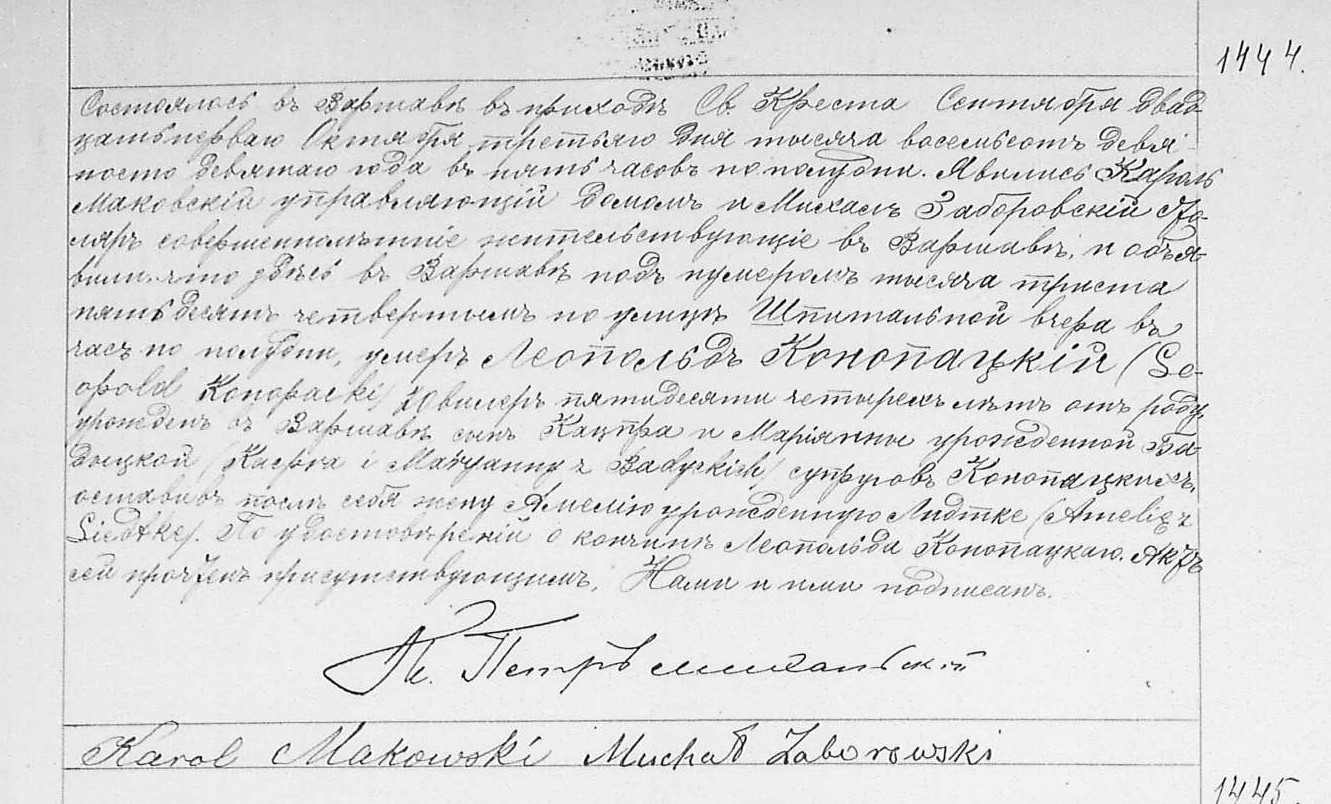 1444.
Состоялось въ Варшавѣ въ приходѣ Св. Креста Сентября двад
цатьперваго Октября третьяго дня тысяча восемьсотъ девя-
носто девятаго года въ пять часовъ по полудни. Явились Кароль
Маковскій управляющій домомъ и Михалъ Заборовскій Сто-
ляръ совершеннолѣтніе жительствующіе въ Варшавѣ, и объя-
вили. что здѣсь въ Варшавѣ подъ нумеромъ тысяча триста
пятьдесятъ четвертымъ по улицѣ Шпитальной вчера въ
часъ по полудни, умеръ Леопольдъ Конопацкій (Le-
opold Konopacki) Ювилеръ пятидесяти четырехъ лѣтъ отъ роду
урожденъ въ Варшавѣ сынъ Кацпра и Маріянны урожденной Ба-
дыцкой (Kacpra i Maryanny z Badyckich) супруговъ Конопацкихъ,
оставивъ послѣ себя жену Амелію урожденную Лидтке (Amelię z
Liedtke). По удостовѣреній о кончинѣ Леопольда Конопацкаго. Актъ
сей прочтенъ присутствующимъ, Нами и ими подписанъ.
Петръ
Karol Makowski Michał Zaborowski
1445.